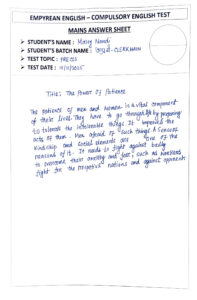 EMPYREAN ENGLISH – COMPULSORY ENGLISH TEST
MAINS ANSWER SHEET
➤ STUDENT'S NAME : Nandi
➤ STUDENT'S BATCH NAME : - CLERKMAIN
➤ TEST TOPIC : PRECIS
➤ TEST DATE :
Title: The Power Of Patience
The patience of men and women is a vital component
of their lives. They have to go through it by preparing
to tolerate the intolerable things. It improved the
acts of them. Men afraid of such things &
kindship and social elements are one of the
of it. It needs to fight against
to overcome their anxiety and fear, such as
fight for the and nations and against opponents